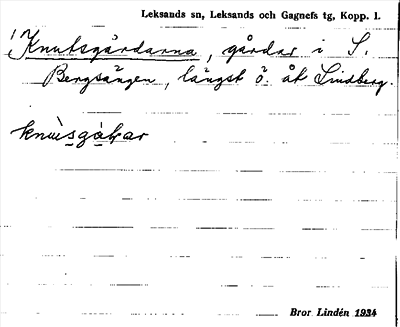 Leksands sn, Leksands och Gagnefs tg, Kopp. l.
1) Knutsgårdarna, gårdar i S.
Bergsängen, längst ö. åt Lindberg.
Bror Lindén 1934